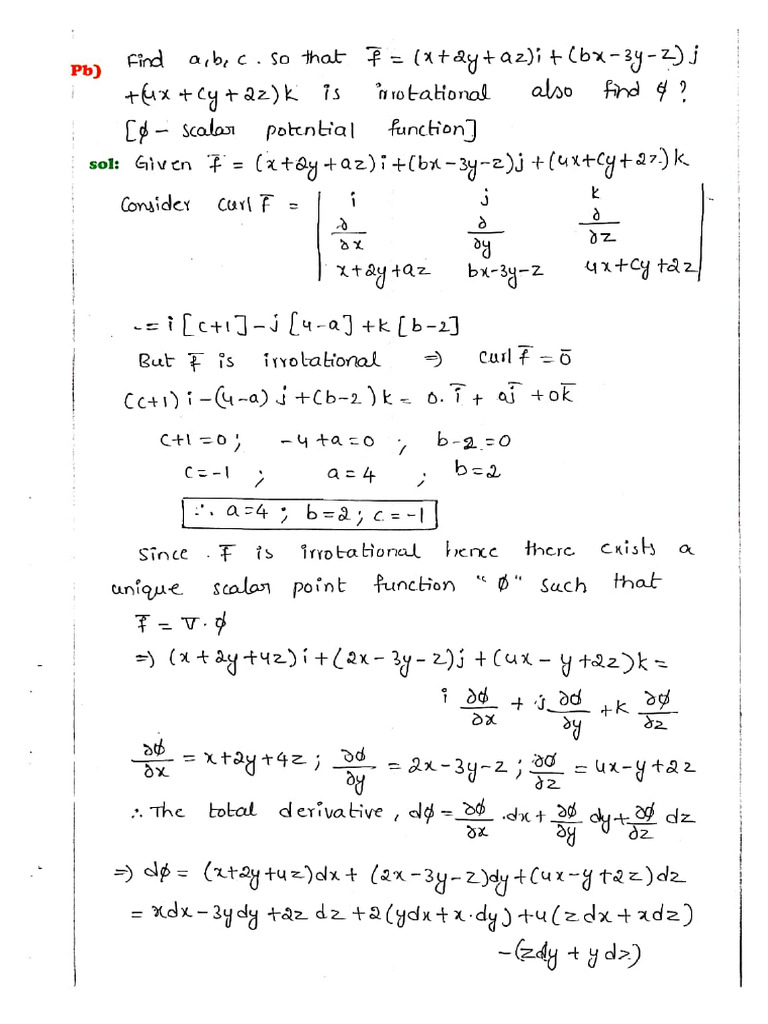 Pb) Find a,b,c. so that F̅ = (x+2y+az)i+(bx-3y-z)j
+(4x+cy+2z)k is irrotational also find φ?
[φ- scalar potential function]
sol: Given F̅ = (x+2y+az)i+(bx-3y-z)j+(4x+cy+2z)k
Consider curl F̅ = | i j k |
| ∂/∂x ∂/∂y ∂/∂z |
| x+2y+az bx-3y-z 4x+cy+2z |
= i[c+1]-j[4-a]+k[b-2]
But F̅ is irrotational ⇒ curl F̅ = 0̅
(c+1)i-(4-a)j+(b-2)k = 0.i̅ + 0j̅ +0k̅
c+1=0; -4+a=0; b-2=0
c=-1; a=4; b=2
∴ a=4; b=2; c=-1
Since F̅ is irrotational hence there exists a
unique scalar point function "φ" such that
F̅ = ∇·φ
⇒ (x+2y+4z)i+(2x-3y-z)j+(4x-y+2z)k =
i ∂φ/∂x + j ∂φ/∂y + k ∂φ/∂z
∂φ/∂x = x+2y+4z; ∂φ/∂y = 2x-3y-z; ∂φ/∂z = 4x-y+2z
∴ The total derivative, dφ = ∂φ/∂x .dx + ∂φ/∂y dy + ∂φ/∂z dz
⇒ dφ = (x+2y+4z)dx + (2x-3y-z)dy+(4x-y+2z)dz
= xdx-3ydy+2z dz+2(ydx+x.dy)+4(zdx+xdz)
-(zdy + ydz)